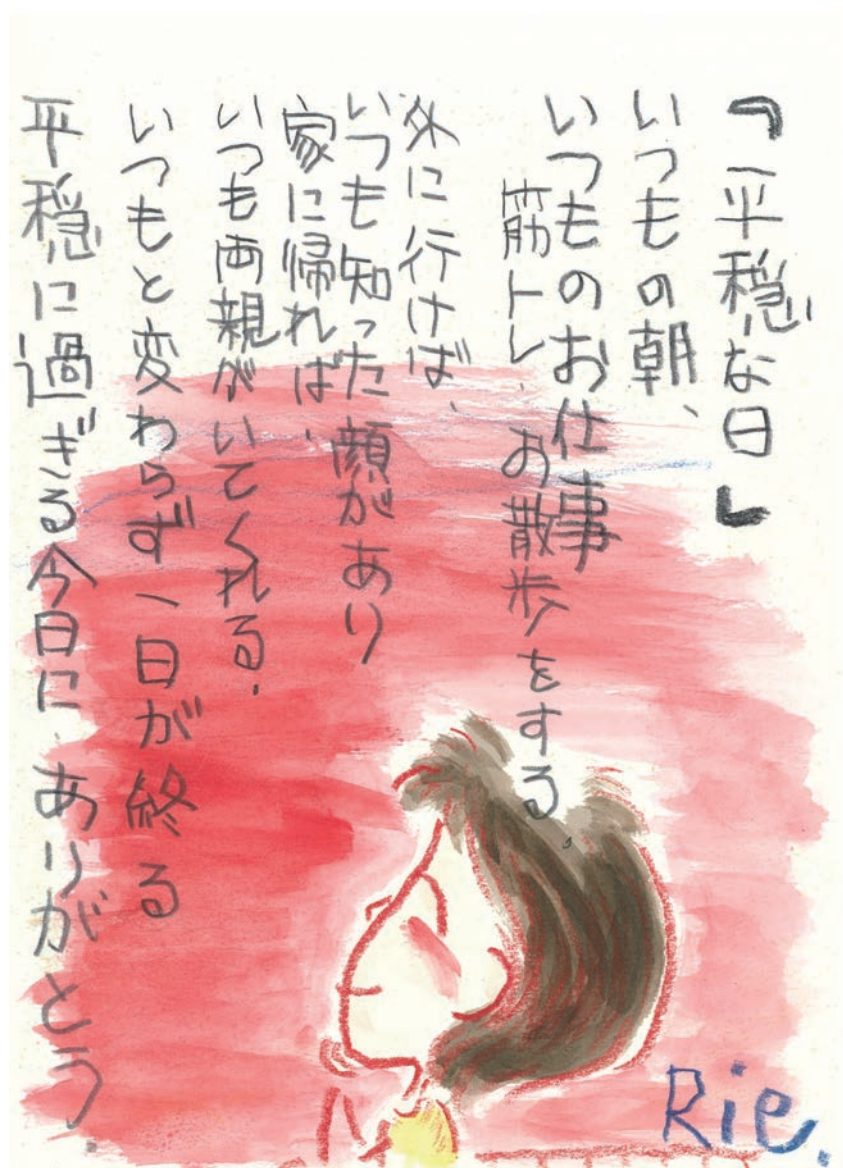 『平穏な日』
いつもの朝、
いつものお仕事
筋トレ、お散歩をする。
外に行けば、
いつも知った顔があり
家に帰れば、
いつも両親がいてくれる.
いつもと変わらず一日が終る
平穏に過ぎる今日にありがとう.
Rie.